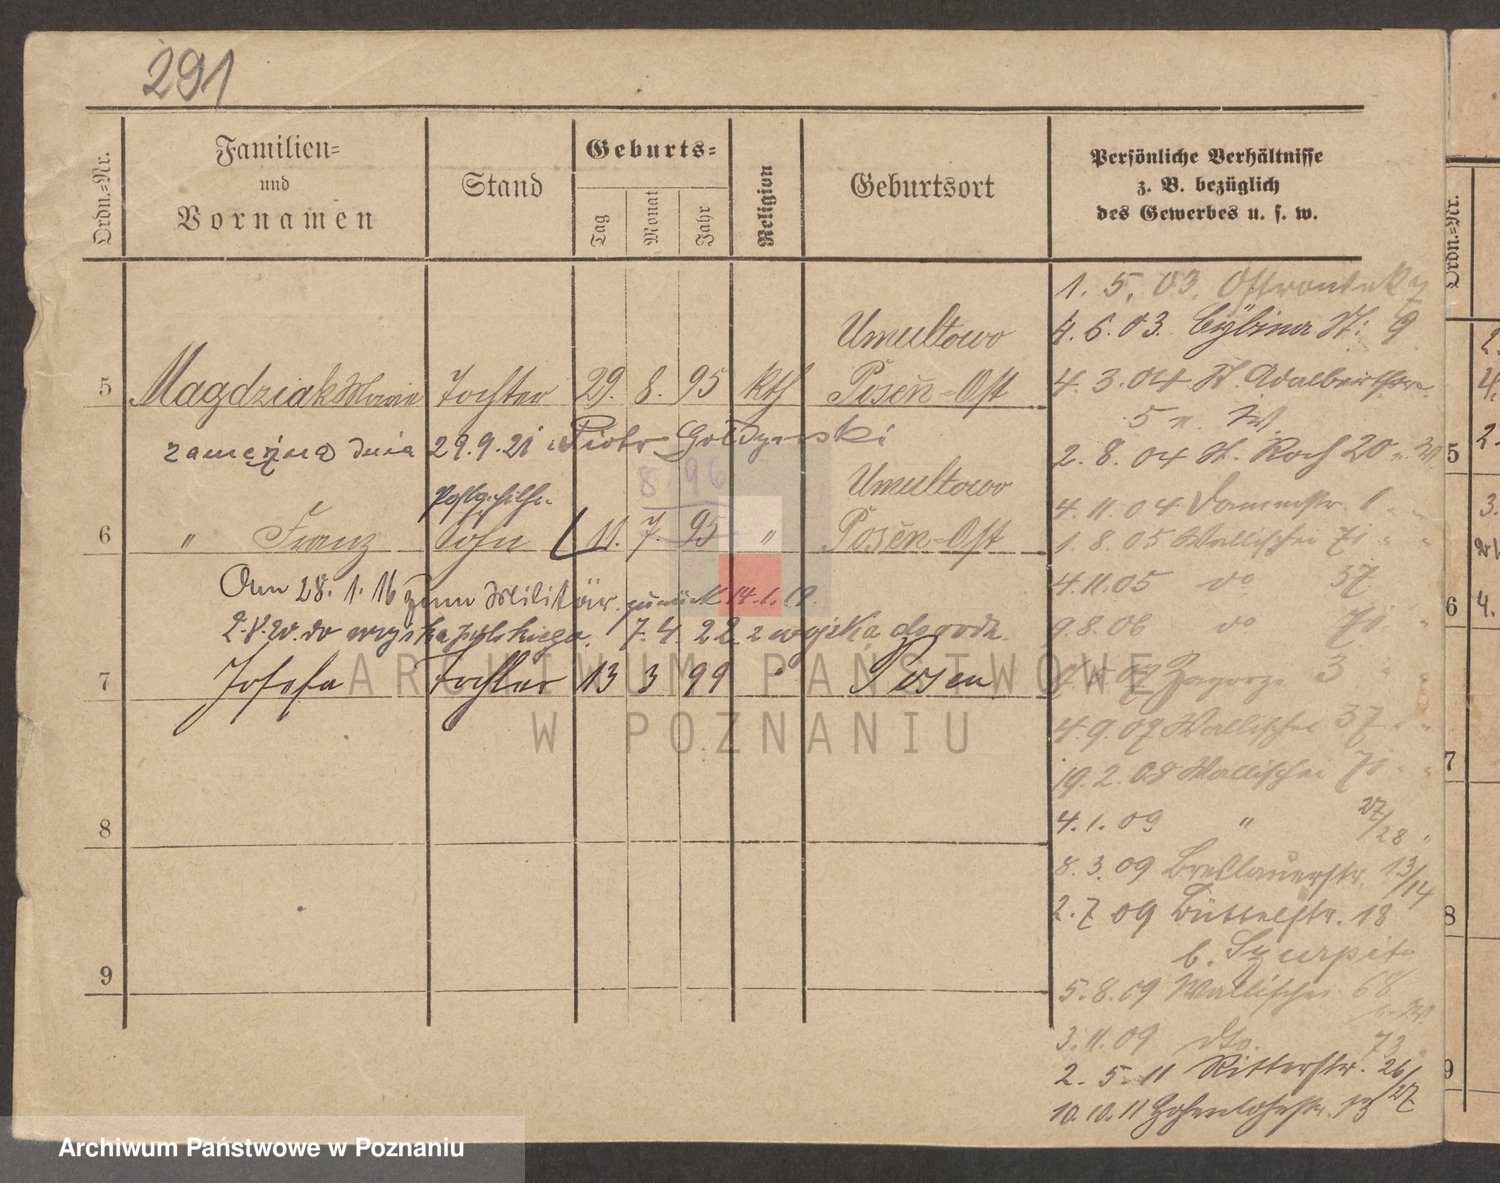 291
Ordn.-Nr.
Familien-
und
Vornamen
Stand
Geburts-
Tag
Monat
Jahr
Religion
Geburtsort
Persönliche Verhältnisse
z. B. bezüglich
des Gewerbes u. s. w.
Umultowo
5 Magdziak Marie Tochter 29. 8. 95 kth Posen-Ost
zamężna dnia 29.9.21 Piotr
8 96
Umultowo
6 " Franz Sohn 11. 7. 95 " Posen-Ost
Am 28. 1. 16 zum Militär. zurück 14.1.19.
7. 4. 22 z wojska
7 Josefa Tochter 13 3 99 " Posen
8
9
1. 5. 03.
4. 6. 03. Cybina St: 9
4. 3. 04 St. Adalbertstr.
5
2. 8. 04 St. Roch 20
4. 11. 04
1. 8. 05 Wallischei 71 " "
4. 11. 05 do 37
9. 8. 06 do 71 "
Zagorze 3 "
4 9 07 Wallischei 37 " "
19. 2. 08 Wallischei 71 " "
4. 1. 09 " 27/28 "
8. 3. 09 Breslauerstr. 13/14
2. 7 09 Büttelstr. 18
b.
5. 8. 09 Wallischei 68
3. 11. 09 dto. 73 "
2. 5. 11 Ritterstr. 26/27
10. 10. 11 Hohenlohestr.
Ordn.-Nr.
5
6
7
8
9
ARCHIWUM PAŃSTWOWE
W POZNANIU
Archiwum Państwowe w Poznaniu